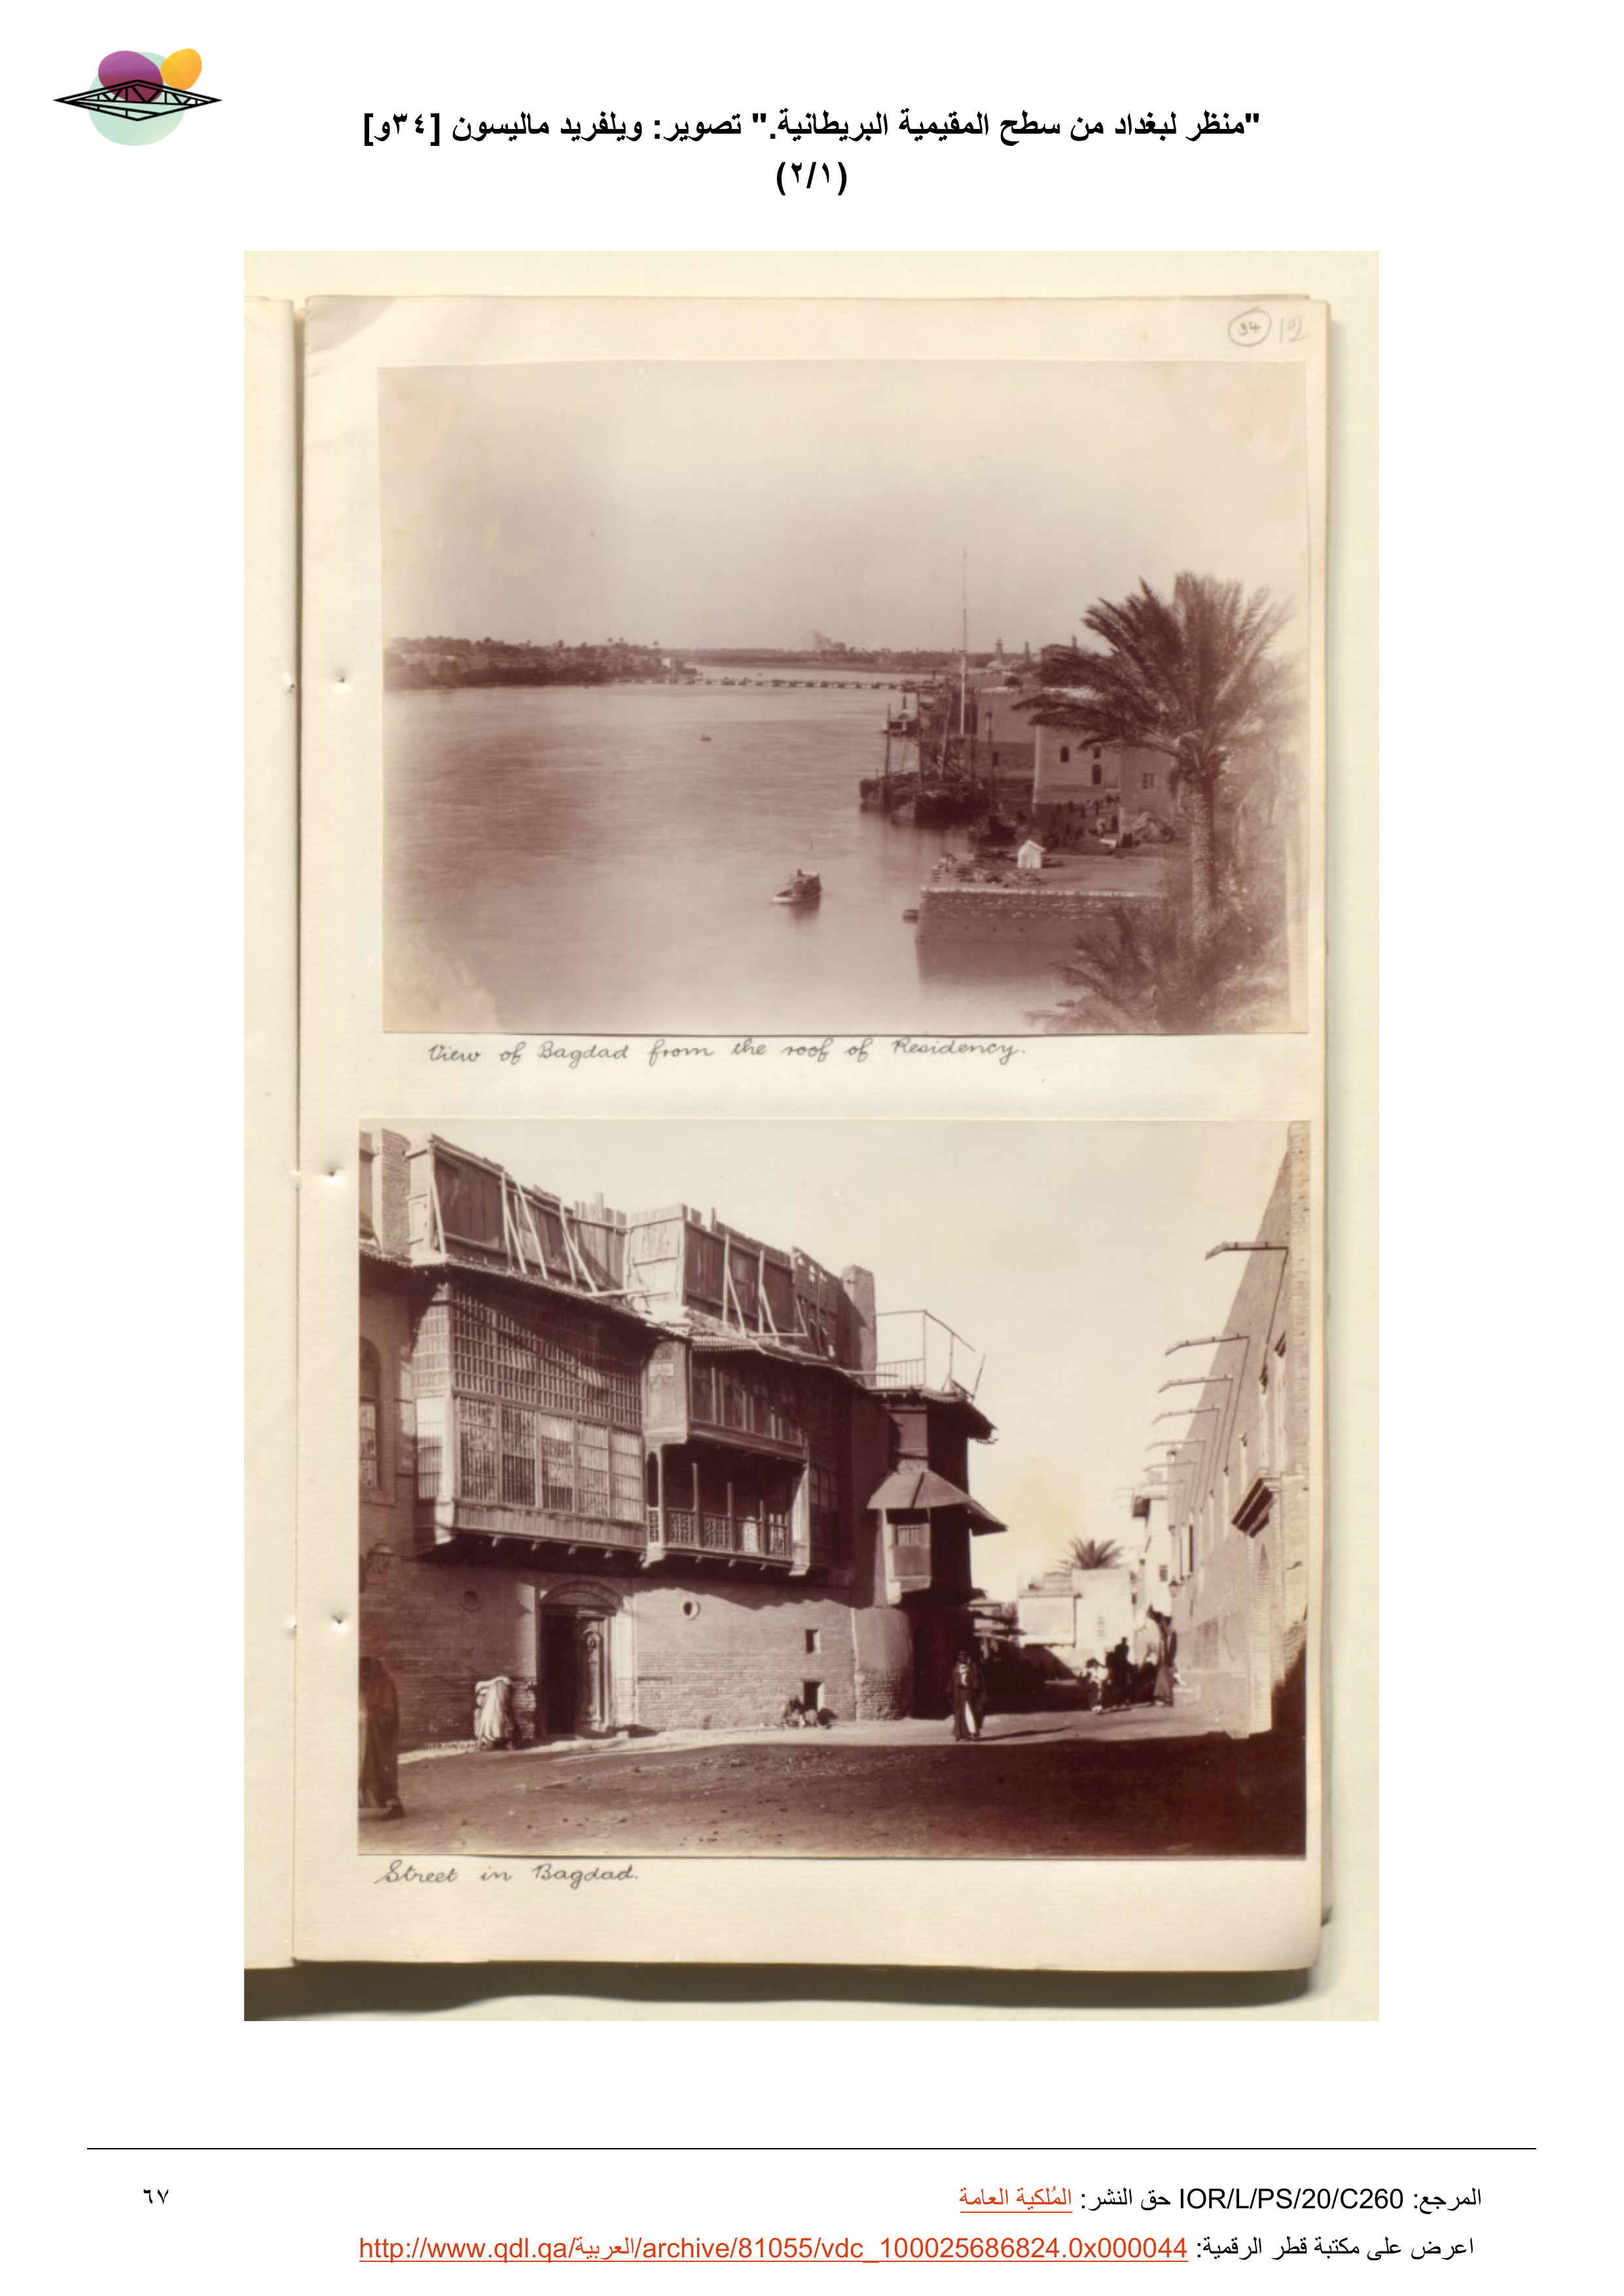 "منظر لبغداد من سطح المقيمية البريطانية." تصوير: ويلفريد ماليسون [٣٤و]
(٢/١)
34 12
View of Bagdad from the roof of Residency.
Street in Bagdad.
المرجع: IOR/L/PS/20/C260 حق النشر: المُلكية العامة
٦٧
اعرض على مكتبة قطر الرقمية: http://www.qdl.qa/العربية/archive/81055/vdc_100025686824.0x000044